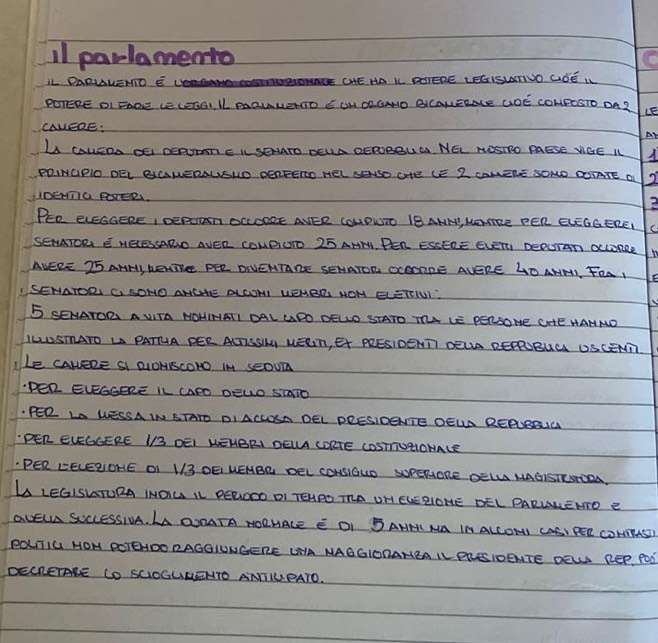 il parlamento
IL PARLAMENTO É CHE HA IL POTERE LEGISLATIVO CIOÉ IL
POTERE DI FARE LE LEGGI. IL PARLAMENTO É UN ORGANO BICAMERALE CIOÉ COMPOSTO DA 2
CAMERE:
LA CAMERA DEI DEPUTATI E IL SENATO DELLA REPUBBLICA. NEL NOSTRO PAESE VIGE IL
PRINCIPIO DEL BICAMERALISMO PERFETTO NEL SENSO CHE LE 2 CAMERE SONO DOTATE DI
IDENTICI POTERI.
PER ELEGGERE I DEPUTATI OCCORRE AVER COMPIUTO 18 ANNI, MENTRE PER ELEGGERE I
SENATORI É NECESSARIO AVER COMPIUTO 25 ANNI. PER ESSERE ELETTI DEPUTATI OCCORRE
AVERE 25 ANNI, MENTRE PER DIVENTARE SENATORI OCCORRE AVERE 40 ANNI. FRA I
SENATORI CI SONO ANCHE ALCUNI MEMBRI NON ELETTIVI:
5 SENATORI A VITA NOMINATI DAL CAPO DELLO STATO TRA LE PERSONE CHE HANNO
ILLUSTRATO LA PATRIA PER ALTISSIMI MERITI, EX PRESIDENTI DELLA REPPUBLICA USCENTI
LE CAMERE SI RIUNISCONO IN SEDUTA
·PER ELEGGERE IL CAPO DELLO STATO
·PER LA MESSA IN STATO DI ACCUSA DEL PRESIDENTE DELLA REPUBBLICA
·PER ELEGGERE 1/3 DEI MEMBRI DELLA CORTE COSTITUZIONALE
·PER L'ELEZIONE DI 1/3 DEI MEMBRI DEL CONSIGLIO SUPERIORE DELLA MAGISTRATURA.
LA LEGISLATURA INDICA IL PERIODO DI TEMPO TRA UN ELEZIONE DEL PARLAMENTO E
QUELLA SUCCESSIVA. LA DURATA NORMALE É DI 5 ANNI MA IN ALCUNI CASI PER CONTRASTI
POLITICI NON POTENDO RAGGIUNGERE UNA MAGGIORANZA IL PRESIDENTE DELLA REP. PUÓ
DECRETARE LO SCIOGLIMENTO ANTICIPATO.